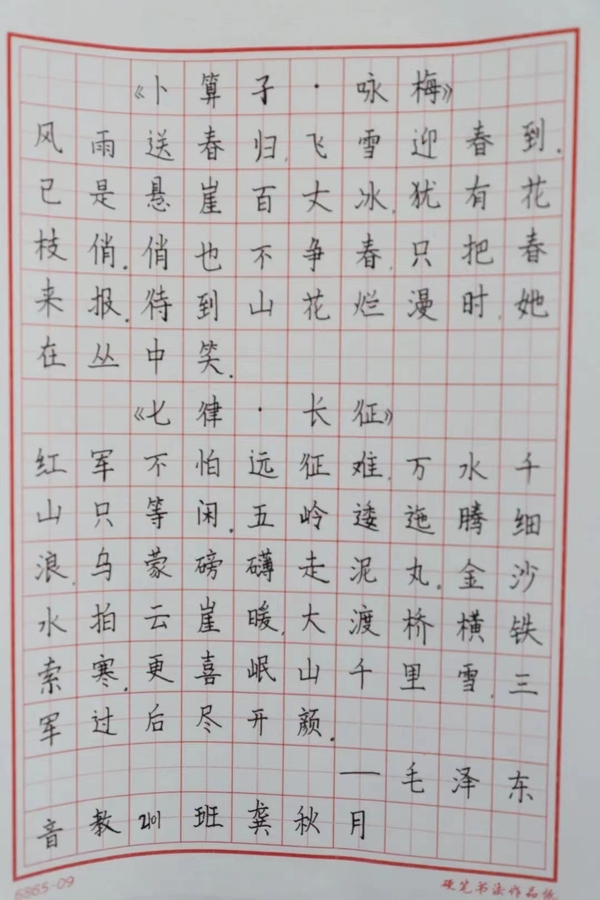 《卜算子·咏梅》
风雨送春归,飞雪迎春到.
已是悬崖百丈冰,犹有花
枝俏.俏也不争春,只把春
来报.待到山花烂漫时,她
在丛中笑.
《七律·长征》
红军不怕远征难,万水千
山只等闲.五岭逶迤腾细
浪,乌蒙磅礴走泥丸.金沙
水拍云崖暖,大渡桥横铁
索寒.更喜岷山千里雪,三
军过后尽开颜.
——毛泽东
音教2101班龚秋月
6865-09 硬笔书法作品纸